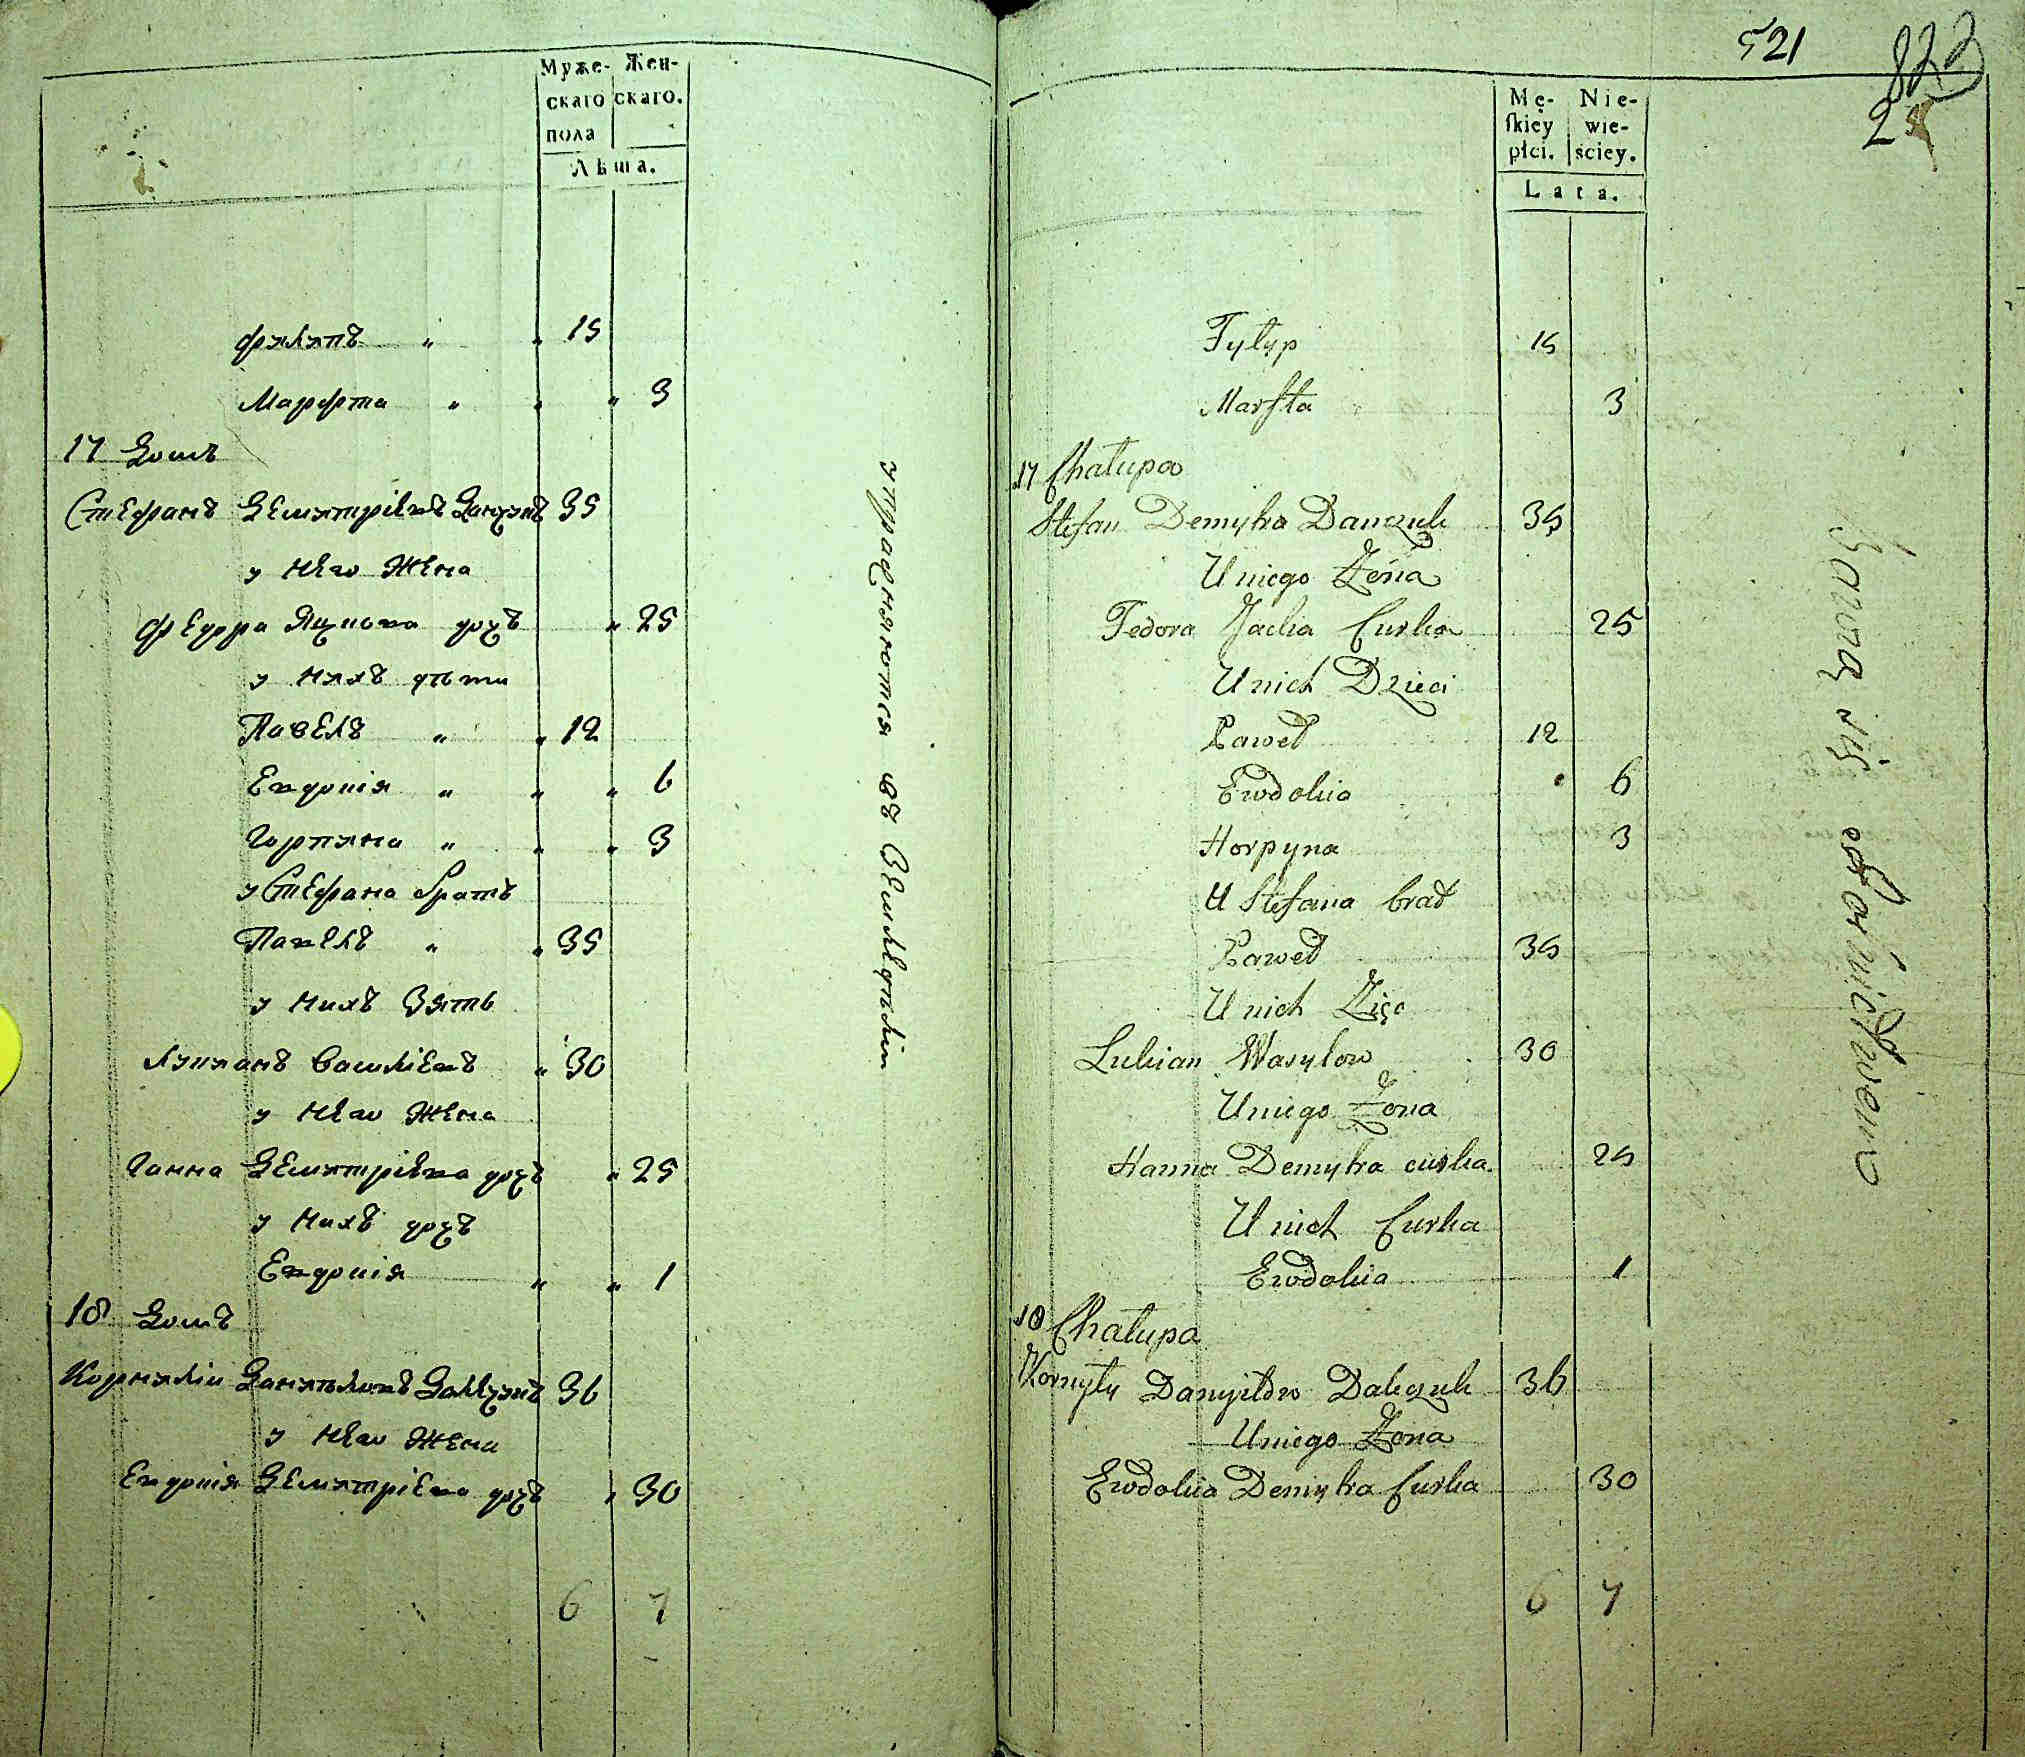 Муже- Жен-
скаго скаго.
пола
Лѣта.
Филипъ " " 15
Марфта " " " 3
17 Домъ
Стефанъ Демитріевъ Данчукъ 35
у него Жена
Федора Яцкова дочъ " 25
у нихъ дѣти
Павелъ " " 12
Евдокія " " " 6
Горпина " " " 3
у Стефана братъ
Павелъ " " 35
у нихъ Зять
Лукианъ Василіевъ " 30
у него Жена
Ганна Демитріева дочъ " 25
у нихъ дочъ
Евдокія " " 1
18 Домъ
Корнилій Данильовъ Дакчукъ 36
у него Жена
Евдокія Демитріева дочъ " 30
6 7
упражняются въ Земледѣліи
521
822
2
Mę- Nie-
ſkiey wie-
płci. ściey.
Lata.
Fyłyp 15
Marfta 3
17 Chałupa
Stefan Demytra Danczuk 35
U niego Żona
Fedora Jacka Curka 25
U nich Dzieci
Paweł 12
Ewdokia 6
Horpyna 3
U Stefana brat
Paweł 35
U nich Zięć
Lukian Wasylow 30
U niego Żona
Hanna Demytra curka 25
U nich Curka
Ewdokia 1
18 Chałupa
Kornyły Danyiłow Dakczuk 36
U niego Żona
Ewdokia Demytra Curka 30
6 7
Bawią się rolnictwem